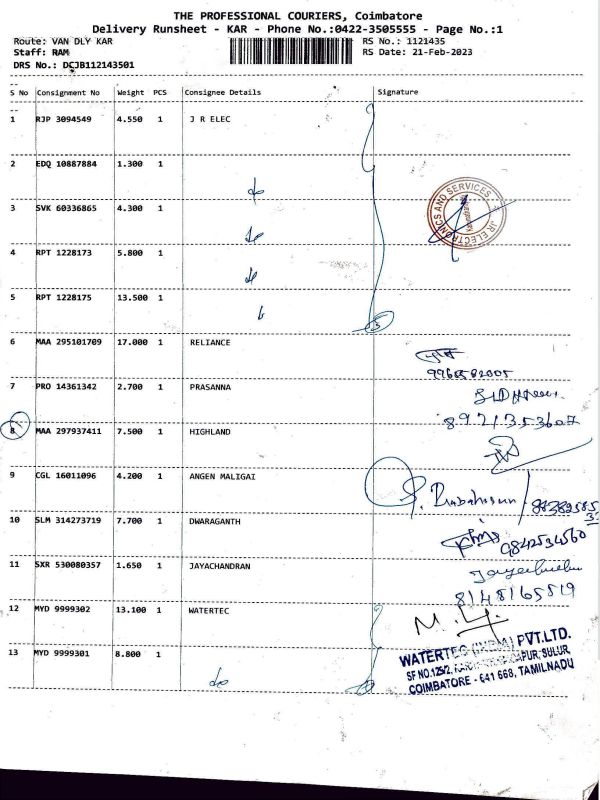 THE PROFESSIONAL COURIERS, Coimbatore
Delivery Runsheet - KAR - Phone No.:0422-3505555 - Page No.:1
Route: VAN DLY KAR RS No.: 1121435
Staff: RAM RS Date: 21-Feb-2023
DRS No.: DCJB112143501
S No Consignment No Weight PCS Consignee Details Signature
1 RJP 3094549 4.550 1 J R ELEC
2 EDQ 10887884 1.300 1
do
3 SVK 60336865 4.300 1
JR ELECTRONICS AND SERVICES
do
4 RPT 1228173 5.800 1
do
5 RPT 1228175 13.500 1
5
6 MAA 295101709 17.000 1 RELIANCE
7 PRO 14361342 2.700 1 PRASANNA
8921353607
8 MAA 297937411 7.500 1 HIGHLAND
9 CGL 16011096 4.200 1 ANGEN MALIGAI
10 SLM 314273719 7.700 1 DWARAGANTH
9842534560
11 SXR 530080357 1.650 1 JAYACHANDRAN
8148165819
12 MYD 9999302 13.100 1 WATERTEC
WATERTEC PVT.LTD.
13 MYD 9999301 8.800 1
SULUR,
COIMBATORE - 641 668, TAMILNADU
do